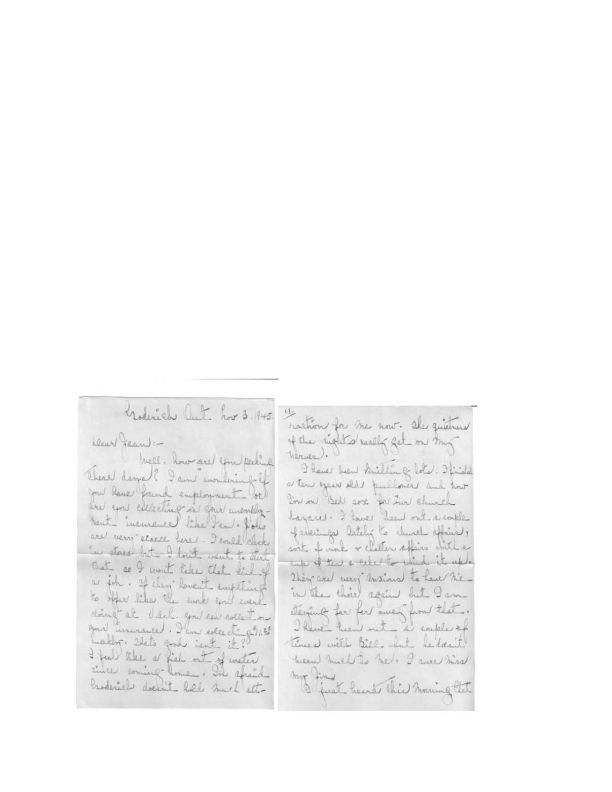 Goderich Ont. Nov 3. 1945.
Dear Jean:-
Well. how are you feeling
these days? I am wondering if
you have found employment or
are you collecting on your unemploy-
ment insurance like I am. Jobs
are very scarce here. I could clerk
in stores but I don't want to start
that so I won't take that kind of
a job. If they haven't anything
to offer like the work you were
doing at you can collect on
your insurance. I am collecting
weekly. That's good isn't it?
I feel like a fish out of water
since coming home. I'm afraid
Goderich doesn't hold much att-
raction for me now. The quietness
of the nights really get on my
nerves.
I have been knitting lots. I finished
a ten year old pullover and now
I'm on Bed sox for our church
bazaar. I have been out a couple
of evenings lately to church affairs,
sort of work & chatter affairs with a
cup of tea & cake to wind it up.
They are very anxious to have me
in the choir again but I am
staying far far away from that.
I have been out a couple of
times with Bill but he doesn't
mean much to me. I sure miss
my Jim
I just heard this morning that